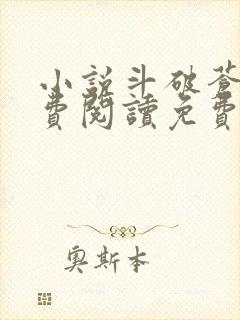 小說斗破蒼
費閱讀免費
奧斯本